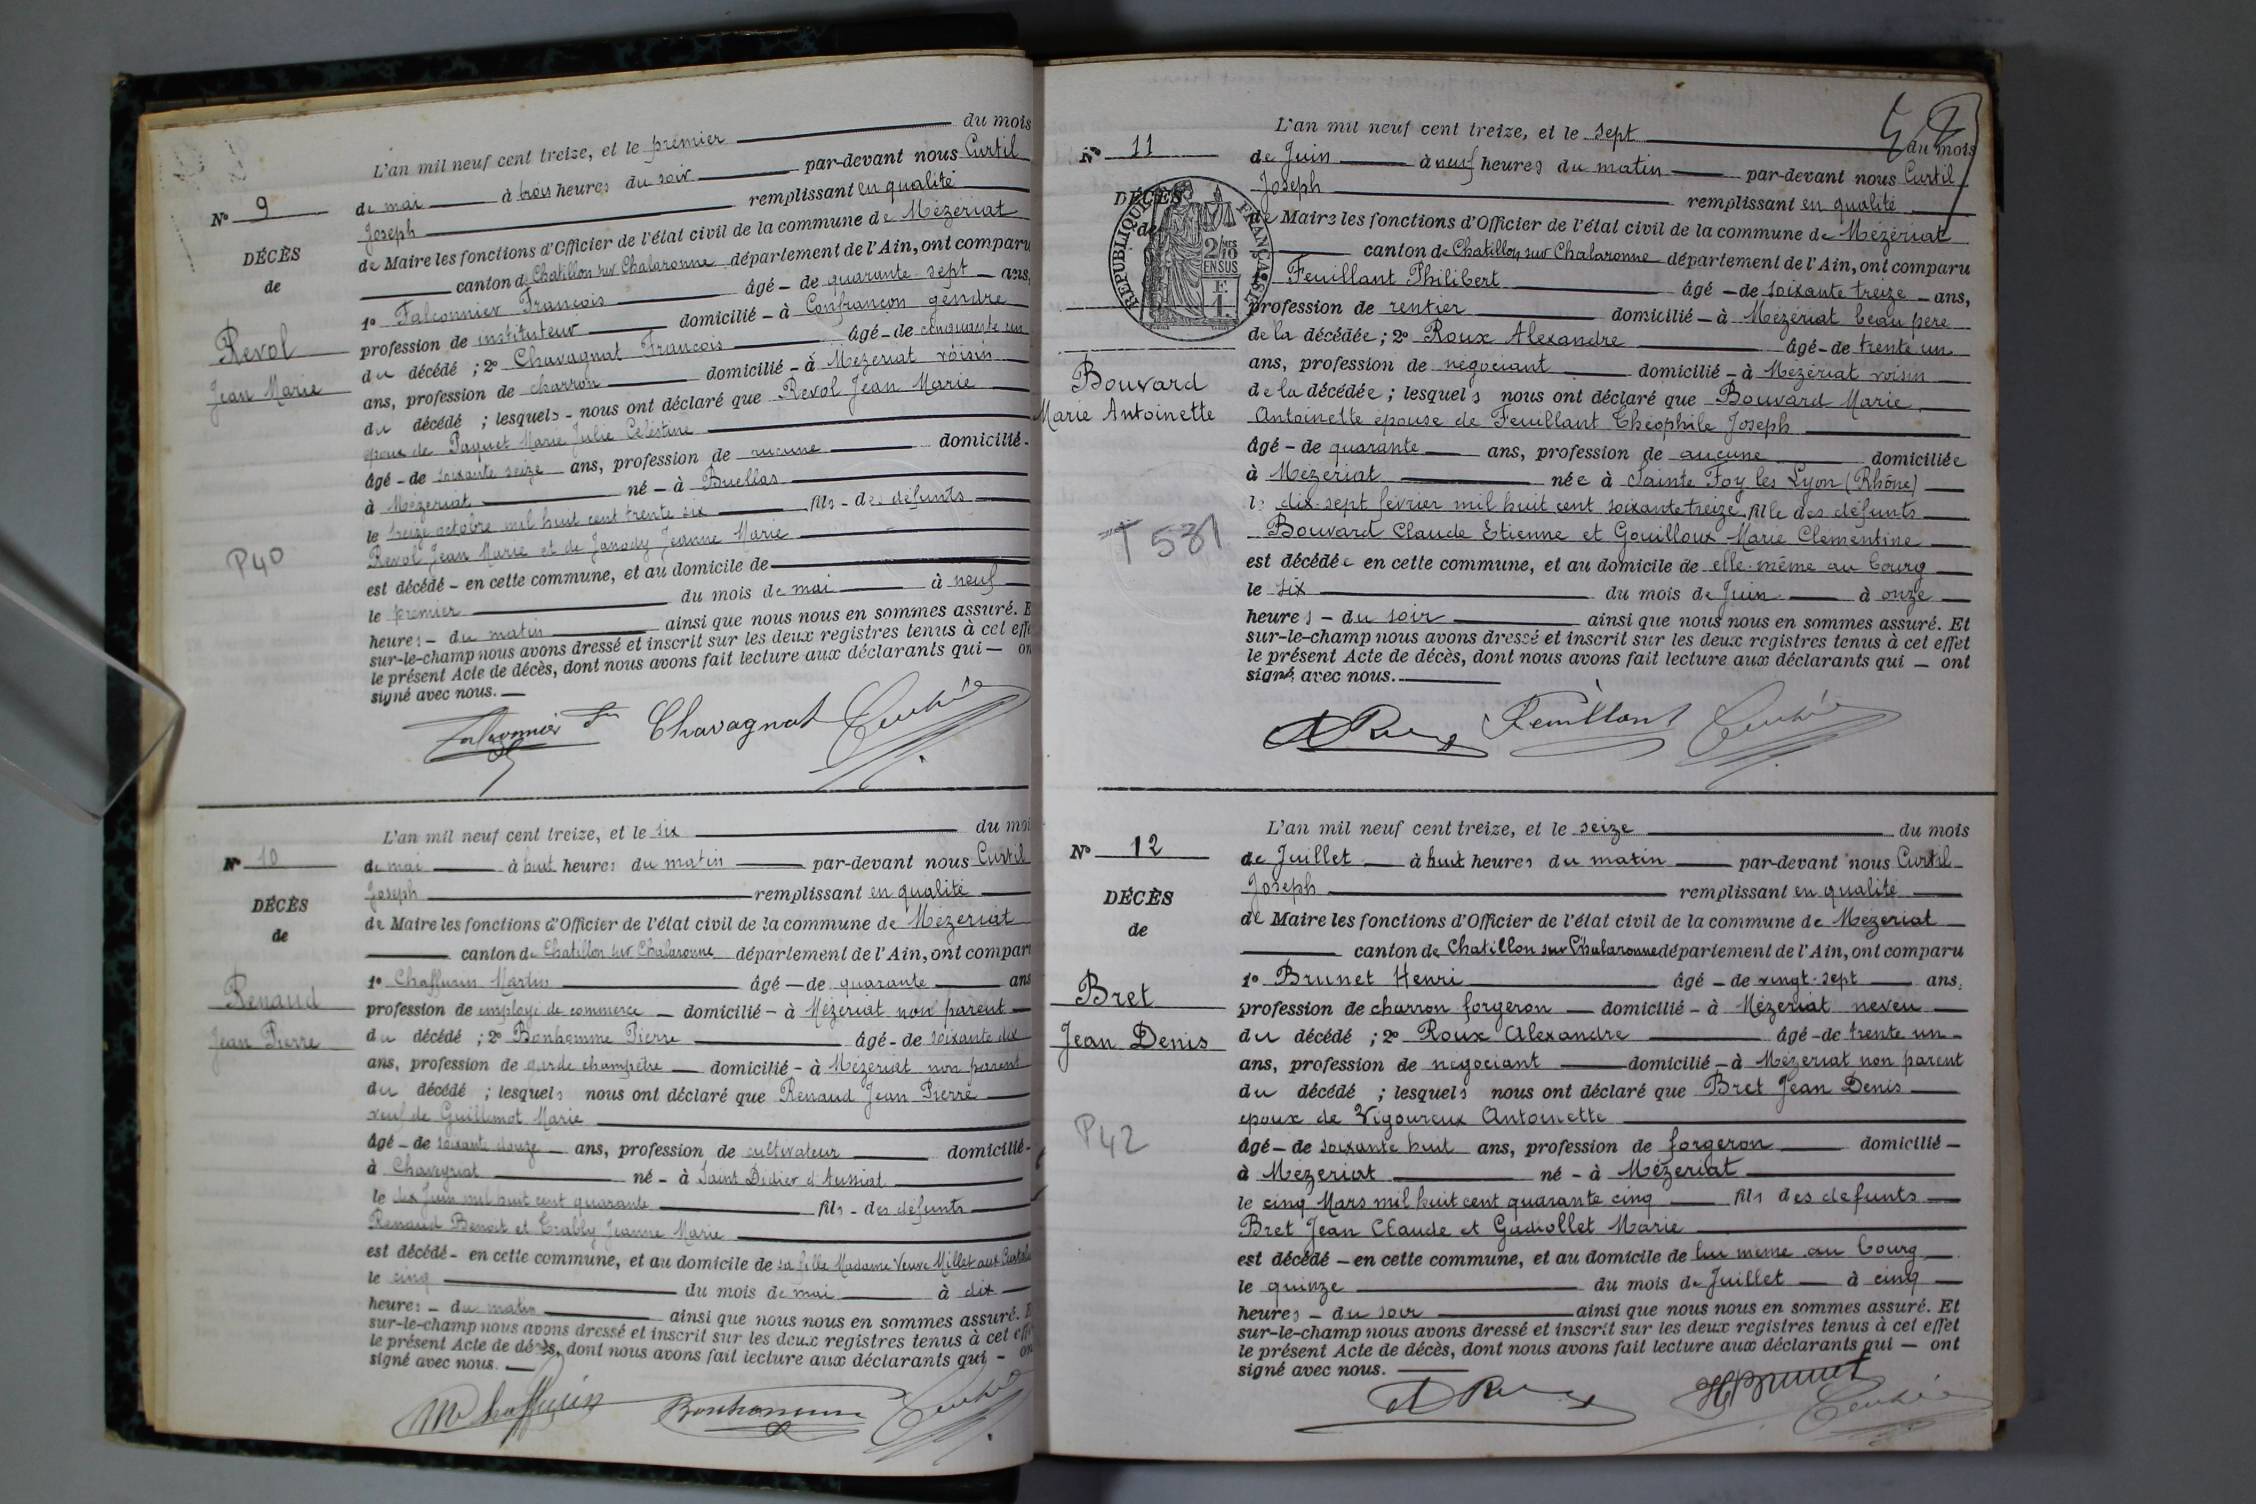 L'an mil neuf cent treize, et le premier du mois
de mai à trois heures du soir par-devant nous Curtil
Joseph remplissant en qualité
de Maire les fonctions d'Officier de l'état civil de la commune de Mézériat
canton de Chatillon sur Chalaronne département de l'Ain, ont comparu
1º Falconnier François âgé - de quarante-sept - ans,
profession de instituteur domicilié - à Confrançon gendre
du décédé ; 2º Chavagnat François âgé - de cinquante un
ans, profession de charron domicilié - à Mézériat voisin
du décédé ; lesquels - nous ont déclaré que Revol Jean Marie
époux de Paquet Marie Julie Célestine
âgé - de soixante seize ans, profession de aucune domicilié -
à Mézériat né - à Buellas
le treize octobre mil huit cent trente six fils - des défunts
Revol Jean Marie et de Janody Jeanne Marie
est décédé - en cette commune, et au domicile de
le premier du mois de mai à neuf
heures - du matin ainsi que nous nous en sommes assuré. E
sur-le-champ nous avons dressé et inscrit sur les deux registres tenus à cet effe
le présent Acte de décès, dont nous avons fait lecture aux déclarants qui — on
signé avec nous.
Nº 9
DÉCÈS
de
Revol
Jean Marie
P40
Falconnier Chavagnat
L'an mil neuf cent treize, et le six du moi
de mai à huit heures du matin par-devant nous Curtil
Joseph remplissant en qualité
de Maire les fonctions d'Officier de l'état civil de la commune de Mézériat
canton de Chatillon sur Chalaronne département de l'Ain, ont compar
1º Chaffurin Martin âgé — de quarante ans
profession de employé de commerce — domicilié - à Mézériat non parent
du décédé ; 2º Bonhomme Pierre âgé - de soixante dix
ans, profession de garde champêtre domicilié - à Mézériat non parent
du décédé ; lesquels nous ont déclaré que Renaud Jean Pierre
veuf de Guillemot Marie
âgé - de soixante douze ans, profession de cultivateur domicilié -
à Chaveyriat né - à Saint Didier d'Aussiat
le dix Juin mil huit cent quarante fils - des défunts
Renaud Benoit et Jeanne Marie
est décédé - en cette commune, et au domicile de sa fille Madame Veuve Millet aux
le cinq du mois de mai à dix
heures - du matin ainsi que nous nous en sommes assuré. E
sur-le-champ nous avons dressé et inscrit sur les deux registres tenus à cet eff
le présent Acte de décès, dont nous avons fait lecture aux déclarants qui - on
signé avec nous.
Nº 10
DÉCÈS
de
Renaud
Jean Pierre
M Chaffurin Bonhomme
L'an mil neuf cent treize, et le sept du mois
de Juin à neuf heures du matin par-devant nous Curtil
Joseph remplissant en qualité
de Maire les fonctions d'Officier de l'état civil de la commune de Mézériat
canton de Chatillon sur Chalaronne département de l'Ain, ont comparu
Feuillant Philibert âgé - de soixante treize - ans,
profession de rentier domicilié - à Mézériat beau père
de la décédée ; 2º Roux Alexandre âgé - de trente un
ans, profession de négociant domicilié - à Mézériat voisin
de la décédée ; lesquels nous ont déclaré que Bouvard Marie
Antoinette épouse de Feuillant Théophile Joseph
âgé - de quarante ans, profession de aucune domiciliée
à Mézériat née à Sainte Foy les Lyon (Rhône)
le dix-sept février mil huit cent soixante treize fille des défunts
Bouvard Claude Etienne et Gouilloux Marie Clémentine
est décédée en cette commune, et au domicile de elle-même au bourg
le six du mois de Juin à onze
heures - du soir ainsi que nous nous en sommes assuré. Et
sur-le-champ nous avons dressé et inscrit sur les deux registres tenus à cet effet
le présent Acte de décès, dont nous avons fait lecture aux déclarants qui — ont
signé avec nous.
Nº 11
DÉCÈS
de
RÉPUBLIQUE FRANÇAISE
2/10
EN SUS
F.
1.
Bouvard
Marie Antoinette
T 581
A Roux Feuillant
L'an mil neuf cent treize, et le seize du mois
de Juillet à huit heures du matin par-devant nous Curtil
Joseph remplissant en qualité
de Maire les fonctions d'Officier de l'état civil de la commune de Mézériat
canton de Chatillon sur Chalaronne département de l'Ain, ont comparu
1º Brunet Henri âgé - de vingt-sept ans,
profession de charron forgeron domicilié - à Mézériat neveu
du décédé ; 2º Roux Alexandre âgé - de trente un -
ans, profession de négociant domicilié - à Mézériat non parent
du décédé ; lesquels nous ont déclaré que Bret Jean Denis
époux de Vigoureux Antoinette
âgé - de soixante huit ans, profession de forgeron domicilié -
à Mézériat né - à Mézériat
le cinq Mars mil huit cent quarante cinq fils des défunts
Bret Jean Claude et Gudiollet Marie
est décédé - en cette commune, et au domicile de lui même au bourg
le quinze du mois de Juillet à cinq
heures - du soir ainsi que nous nous en sommes assuré. Et
sur-le-champ nous avons dressé et inscrit sur les deux registres tenus à cet effet
le présent Acte de décès, dont nous avons fait lecture aux déclarants qui — ont
signé avec nous.
Nº 12
DÉCÈS
de
Bret
Jean Denis
P42
A Roux H Brunet